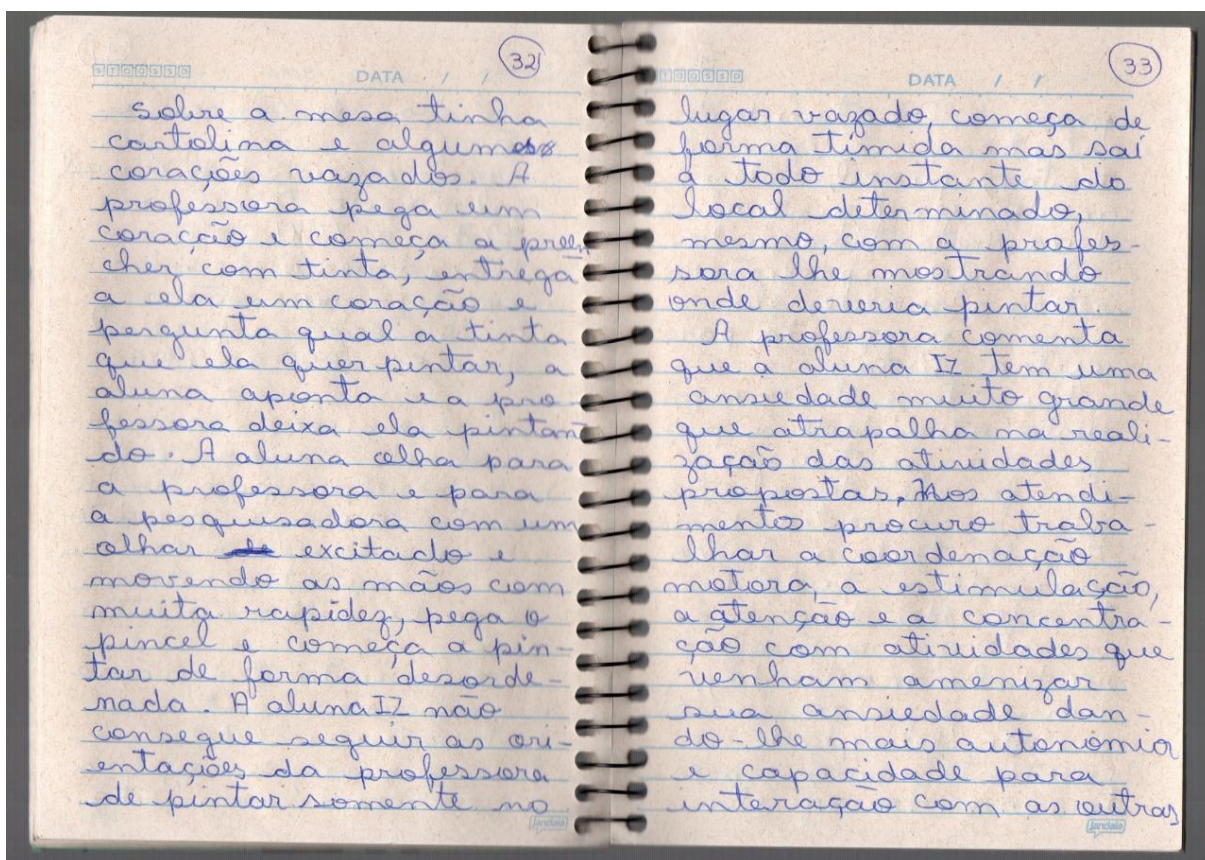 32
STQQSSD
DATA / /
Sobre a mesa tinha
cartolina e algumas
corações vazados. A
professora pega um
coração e começa a preen
cher com tinta, entrega
a ela um coração e
pergunta qual a tinta
que ela quer pintar, a
aluna aponta e a pro
fessora deixa ela pintan
do. A aluna olha para
a professora e para
a pesquisadora com um
olhar excitado e
movendo as mãos com
muita rapidez, pega o
pincel e começa a pin-
tar de forma desorde-
nada. A aluna IZ não
consegue seguir as ori-
entações da professora
de pintar somente no
jandaia
33
TQQSSD
DATA / /
lugar vazado, começa de
forma tímida mas sai
a todo instante do
local determinado,
mesmo, com a profes-
sora lhe mostrando
onde deveria pintar.
A professora comenta
que a aluna IZ tem uma
ansiedade muito grande
que atrapalha na reali-
zação das atividades
propostas. Nos atendi-
mentos procuro traba-
lhar a coordenação
motora, a estimulação,
a atenção e a concentra-
ção com atividades que
venham amenizar
sua ansiedade dan-
do-lhe mais autonomia
e capacidade para
interação com as outras
jandaia